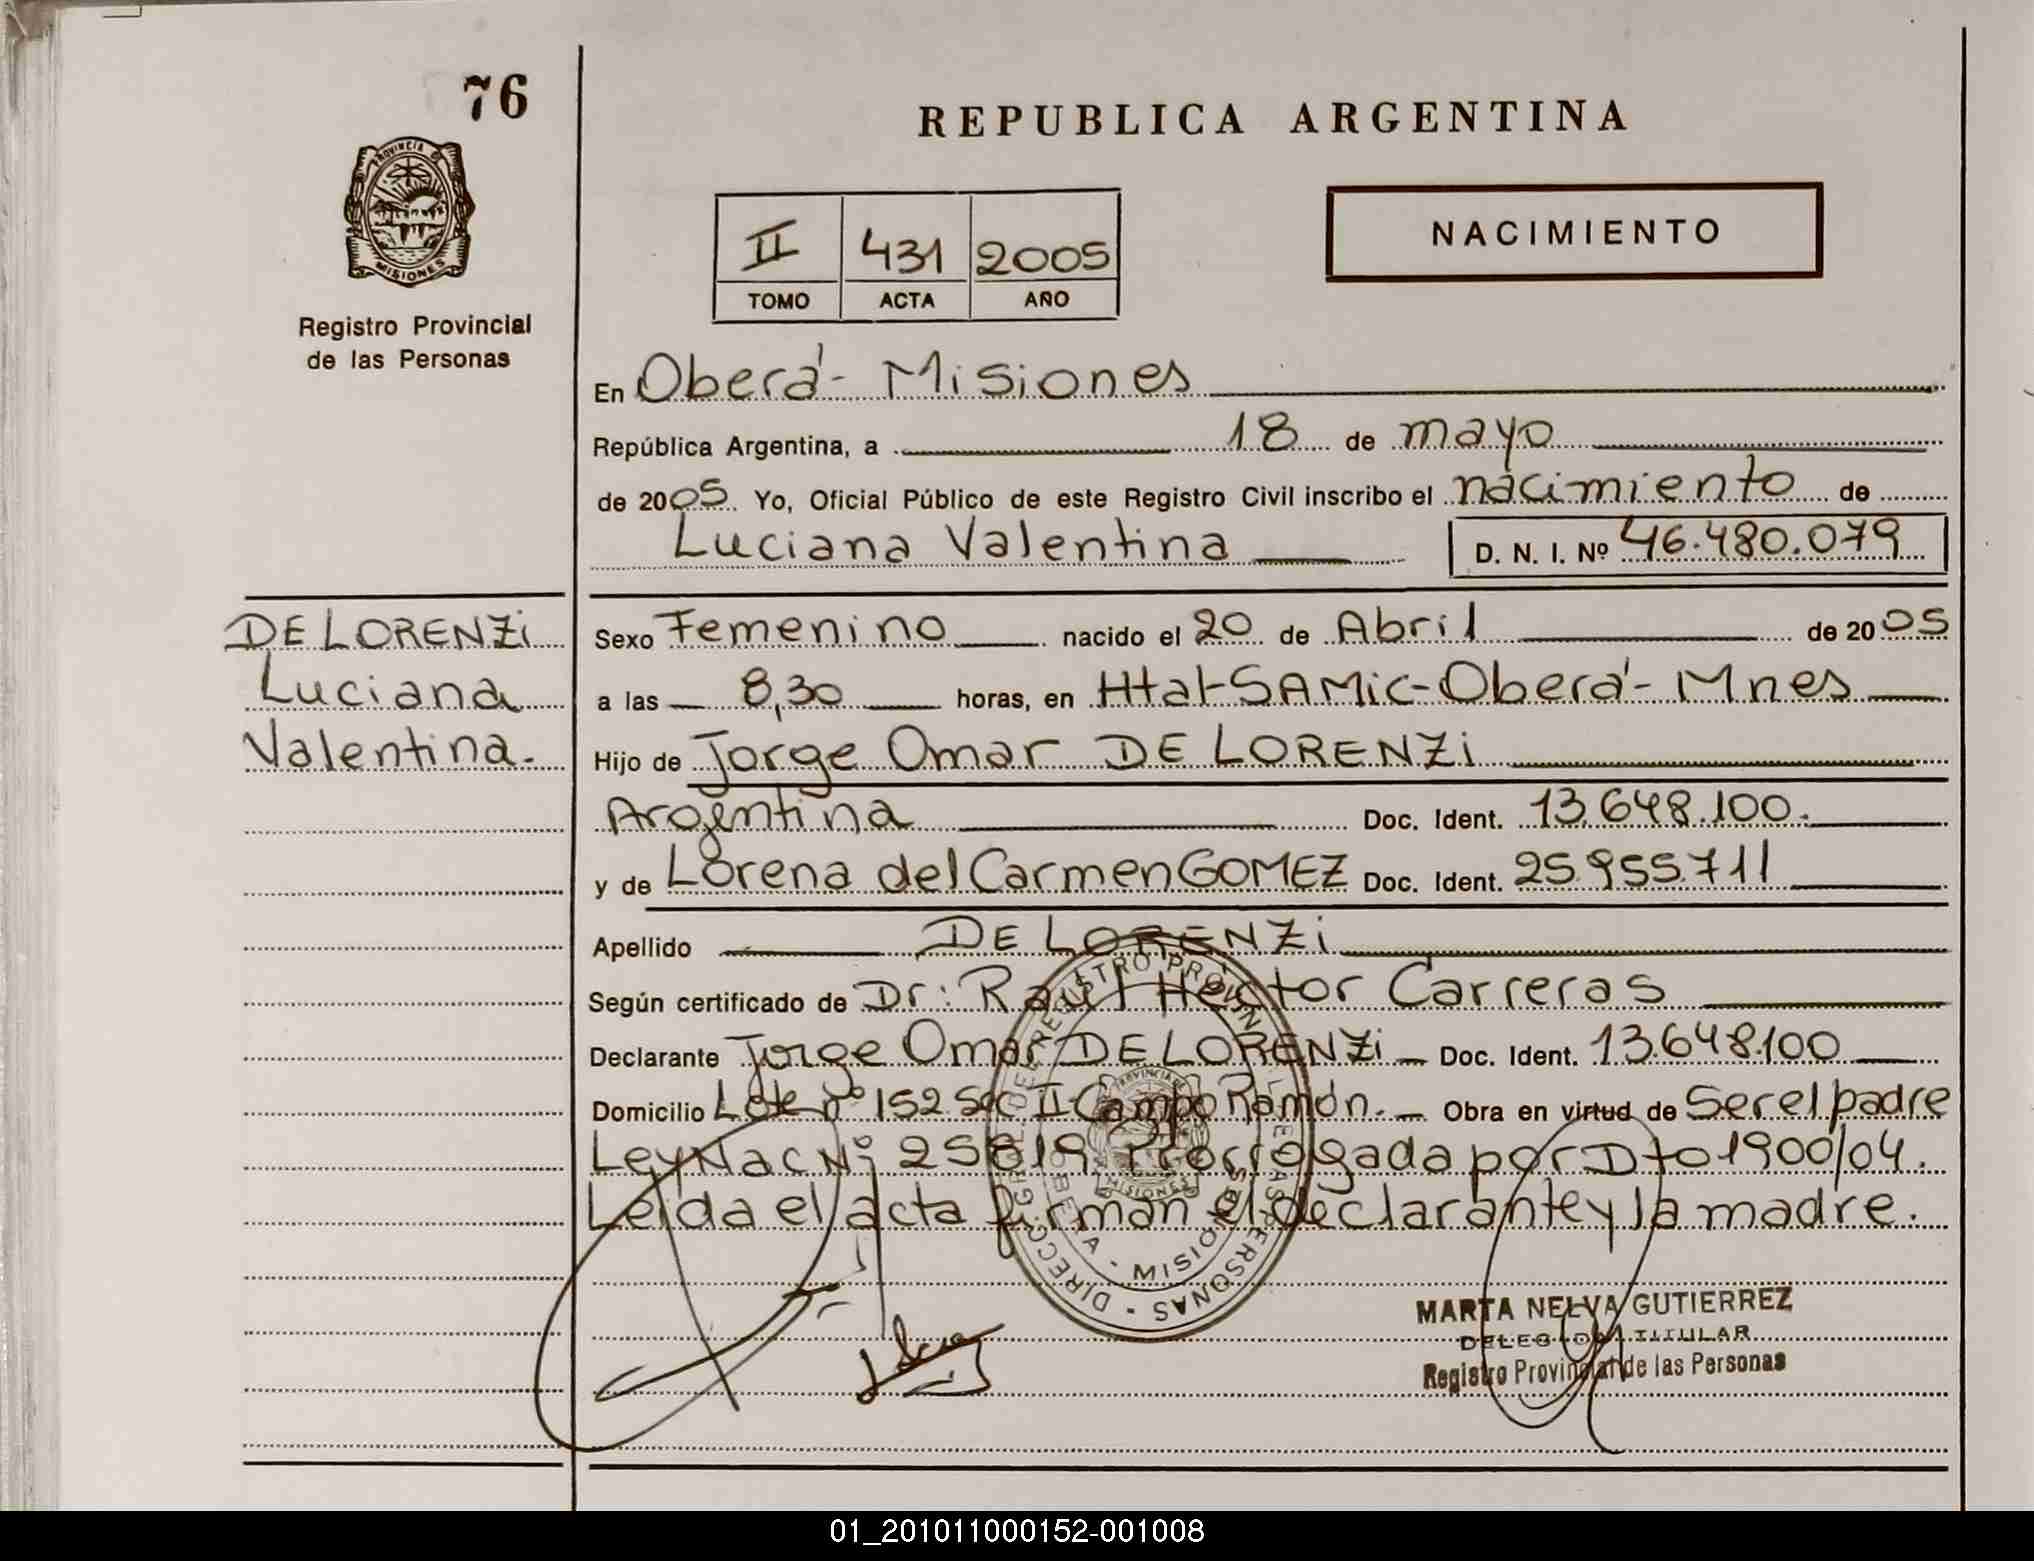 76
REPUBLICA ARGENTINA
PROVINCIA DE
MISIONES
Registro Provincial
de las Personas
II 431 2005
TOMO ACTA AÑO
NACIMIENTO
En Oberá - Misiones
República Argentina, a 18 de mayo
de 2005. Yo, Oficial Público de este Registro Civil inscribo el nacimiento de
Luciana Valentina D. N. I. Nº 46.480.079
DE LORENZi
Luciana
Valentina.
Sexo Femenino nacido el 20 de Abril de 2005
a las 8,30 horas, en Htal-SAMiC-Oberá-Mnes
Hijo de Jorge Omar DE LORENZi
Argentina Doc. Ident. 13.648.100.
y de Lorena del Carmen GOMEZ Doc. Ident. 25.955.711
Apellido DE LORENZi
Según certificado de Dr: Raul Hector Carreras
Declarante Jorge Omar DE LORENZi Doc. Ident. 13.648.100
Domicilio Lote nº 152 Sec II Campo Ramón. Obra en virtud de Ser el padre
Ley Nac Nº 25819 Prorrogada por Dto 1900/04.
Leída el acta firman el declarante y la madre.
MARTA NELVA GUTIERREZ
DELEGADA TITULAR
Registro Provincial de las Personas
01_201011000152-001008